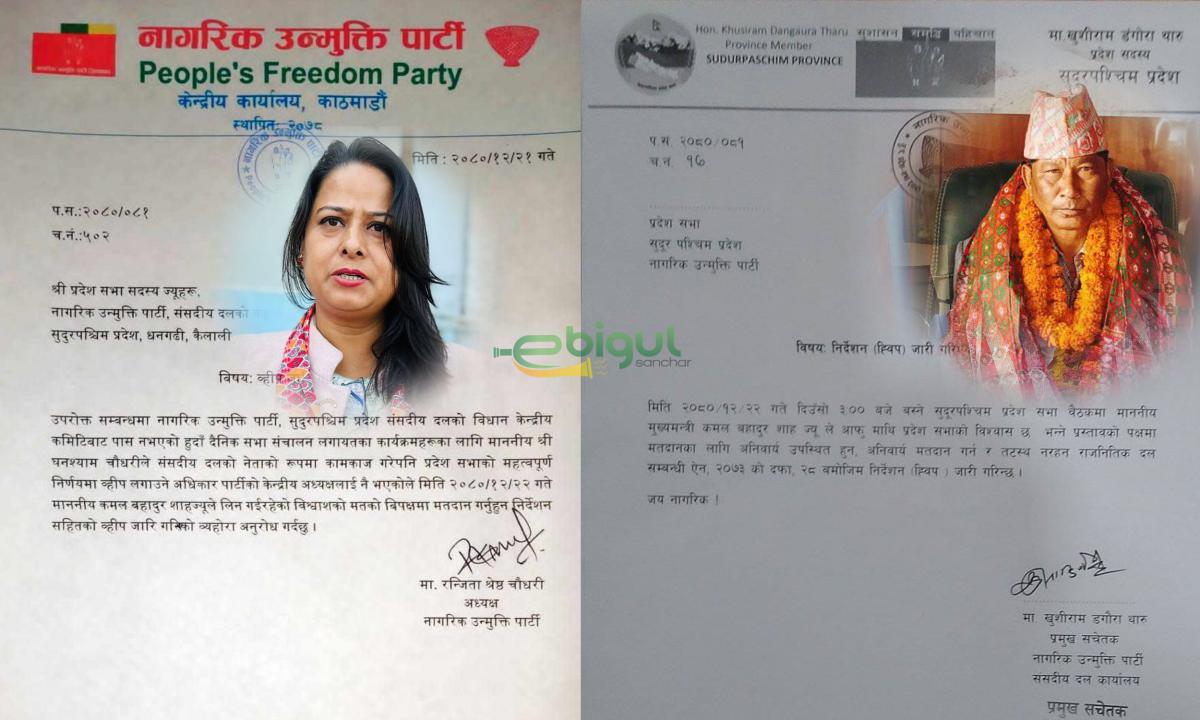 नागरिक उन्मुक्ति पार्टी
People's Freedom Party
केन्द्रीय कार्यालय, काठमाडौं
स्थापित २०७८
मिति : २०८०/१२/२१ गते
प.स.:२०८०/०८१
च.नं.:५०२
श्री प्रदेश सभा सदस्य ज्यूहरू,
नागरिक उन्मुक्ति पार्टी, संसदीय दलको
सुदुरपश्चिम प्रदेश, धनगढी, कैलाली
बिषय: व्हीप
उपरोक्त सम्बन्धमा नागरिक उन्मुक्ति पार्टी, सुदुरपश्चिम प्रदेश संसदीय दलको विधान केन्द्रीय
कमिटिबाट पास नभएको हुदाँ दैनिक सभा संचालन लगायतका कार्यक्रमहरूका लागि माननीय श्री
घनश्याम चौधरीले संसदीय दलको नेताको रूपमा कामकाज गरेपनि प्रदेश सभाको महत्वपूर्ण
निर्णयमा व्हीप लगाउने अधिकार पार्टीको केन्द्रीय अध्यक्षलाई नै भएकोले मिति २०८०/१२/२२ गते
माननीय कमल बहादुर शाहज्यूले लिन गईरहेको विश्वाशको मतको बिपक्षमा मतदान गर्नुहुन निर्देशन
सहितको व्हीप जारि गरिको व्यहोरा अनुरोध गर्दछु ।
मा. रन्जिता श्रेष्ठ चौधरी
अध्यक्ष
नागरिक उन्मुक्ति पार्टी
ebigul
sanchar
Hon. Khusiram Dangaura Tharu
Province Member
SUDURPASCHIM PROVINCE
सुशासन समृद्धि पहिचान
मा.खुशीराम डंगौरा थारु
प्रदेश सदस्य
सुदुरपश्चिम प्रदेश
प.स. २०८०/०८१
च.न. १६
प्रदेश सभा
सुदूर पश्चिम प्रदेश
नागरिक उन्मुक्ति पार्टी
विषय: निर्देशन (ह्विप) जारी
मिति २०८०/१२/२२ गते दिउँसो ३:०० बजे बस्ने सुदूरपश्चिम प्रदेश सभा बैठकमा माननीय
मुख्यमन्त्री कमल बहादुर शाह ज्यू ले आफु माथि प्रदेश सभाको विश्वास छ भन्ने प्रस्तावको पक्षमा
मतदानका लागि अनिवार्य उपस्थित हुन, अनिवार्य मतदान गर्न र तटस्थ नरहन राजनितिक दल
सम्बन्धी ऐन, २०७३ को दफा, २८ बमोजिम निर्देशन (ह्विप ) जारी गरिन्छ ।
जय नागरिक !
मा. खुशीराम डगौरा थारु
प्रमुख सचेतक
नागरिक उन्मुक्ति पार्टी
संसदीय दल कार्यालय
प्रमुख सचेतक